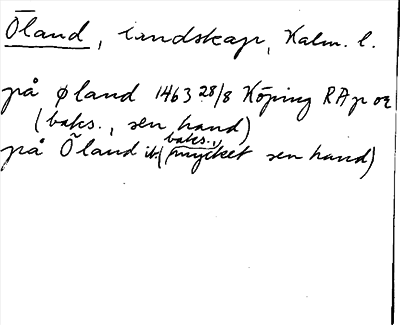 Öland, landskap, Kalm. l.
på øland 1463 28/8 Köping RAp or
(baks., sen hand)
på Öland ib (baks., mycket sen hand)